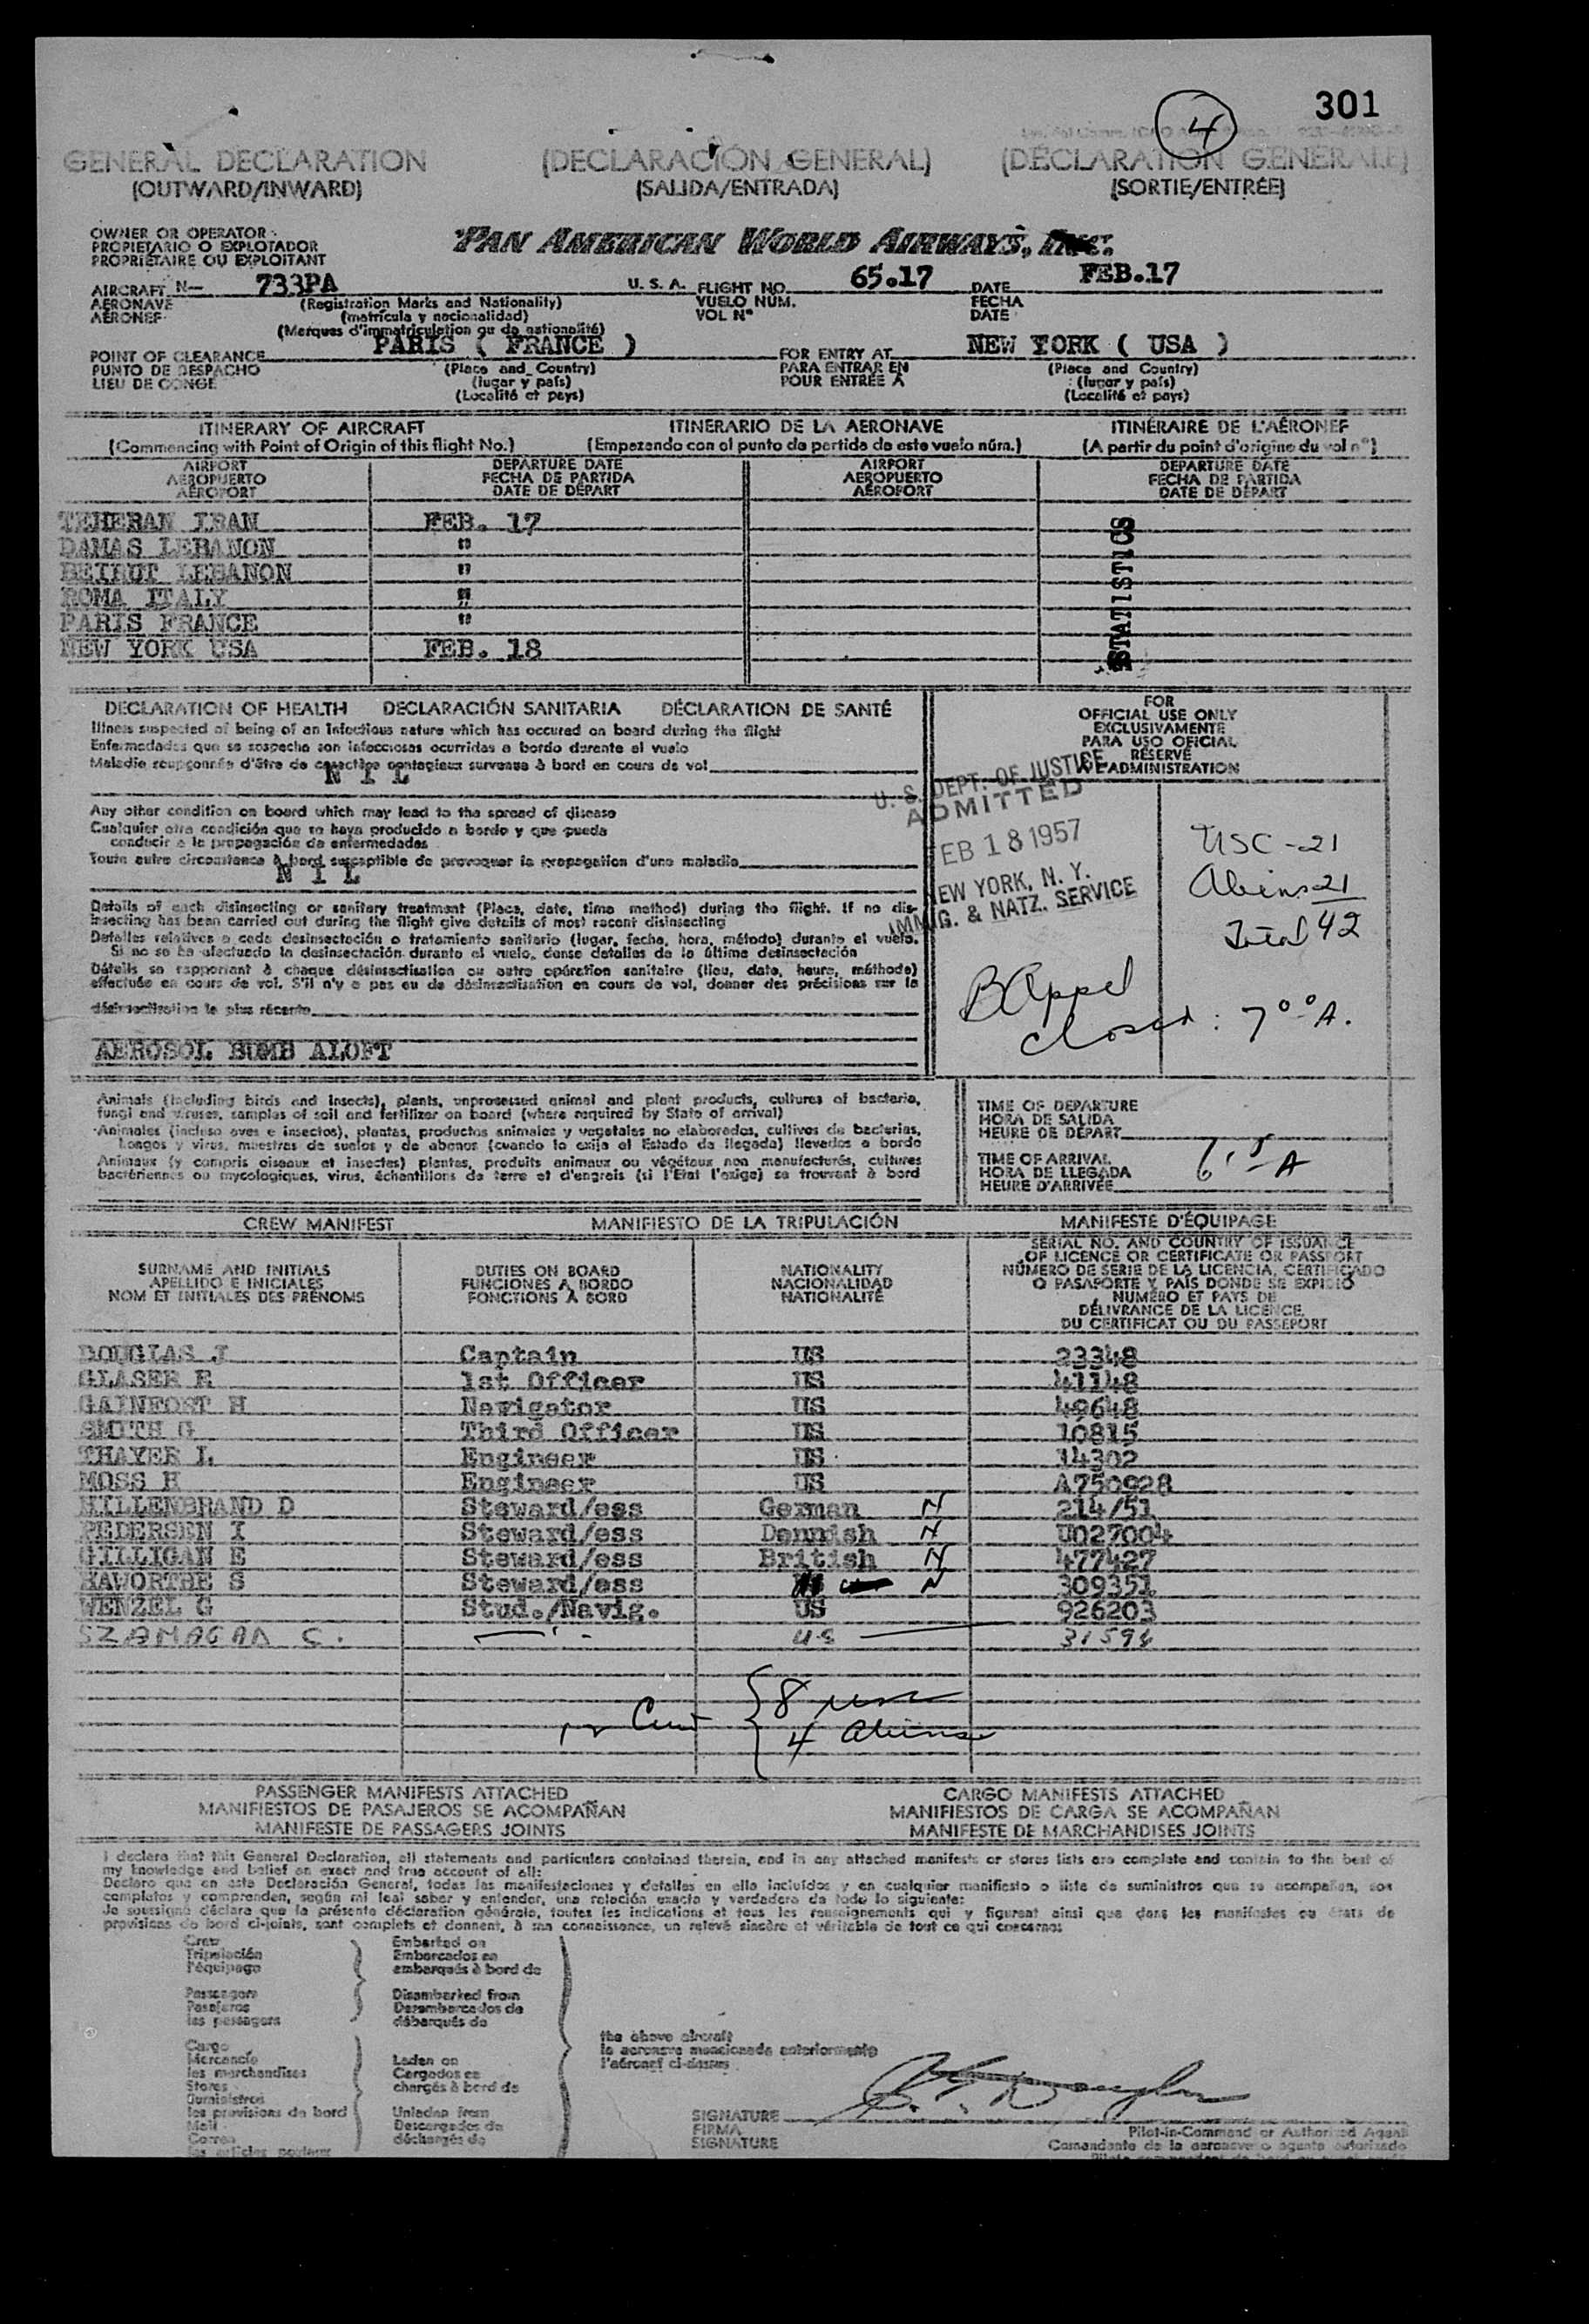 301
4
GENERAL DECLARATION (DECLARACIÓN GENERAL) (DÉCLARATION GÉNÉRALE)
(OUTWARD/INWARD) (SALIDA/ENTRADA) (SORTIE/ENTRÉE)
OWNER OR OPERATOR
PROPIETARIO O EXPLOTADOR
PROPRIÉTAIRE OU EXPLOITANT
PAN AMERICAN WORLD AIRWAYS, INC.
AIRCRAFT N— 733PA U. S. A. FLIGHT NO. 65.17 DATE FEB.17
AERONAVE (Registration Marks and Nationality) VUELO NÚM. FECHA
AÉRONEF (matrícula y nacionalidad) VOL Nº DATE
(Marques d'immatriculation ou de nationalité)
PARIS ( FRANCE ) NEW YORK ( USA )
POINT OF CLEARANCE FOR ENTRY AT
PUNTO DE DESPACHO (Place and Country) PARA ENTRAR EN (Place and Country)
LIEU DE CONGÉ (lugar y país) POUR ENTRÉE À (lugar y país)
(Localité et pays) (Localité et pays)
ITINERARY OF AIRCRAFT ITINERARIO DE LA AERONAVE ITINÉRAIRE DE L'AÉRONEF
(Commencing with Point of Origin of this flight No.) (Empezando con el punto de partida de este vuelo núm.) (A partir du point d'origine du vol nº)
AIRPORT DEPARTURE DATE AIRPORT DEPARTURE DATE
AEROPUERTO FECHA DE PARTIDA AEROPUERTO FECHA DE PARTIDA
AÉROPORT DATE DE DÉPART AÉROPORT DATE DE DÉPART
TEHERAN IRAN FEB. 17
DAMAS LEBANON "
BEIRUT LEBANON "
ROMA ITALY "
PARIS FRANCE "
NEW YORK USA FEB. 18
STATISTICS
DECLARATION OF HEALTH DECLARACIÓN SANITARIA DÉCLARATION DE SANTÉ
Illness suspected of being of an infectious nature which has occured on board during the flight
Enfermedades que se sospecha son infecciosas ocurridas a bordo durante el vuelo
Maladie soupçonnée d'être de caractère contagieux survenue à bord en cours de vol
N I L
Any other condition on board which may lead to the spread of disease
Cualquier otra condición que se haya producido a bordo y que pueda
conducir a la propagación de enfermedades
Toute autre circonstance à bord susceptible de provoquer la propagation d'une maladie
N I L
Details of each disinsecting or sanitary treatment (Place, date, time method) during the flight. If no dis-
insecting has been carried out during the flight give details of most recent disinsecting
Detalles relativos a cada desinsectación o tratamiento sanitario (lugar, fecha, hora, método) durante el vuelo.
Si no se ha efectuado la desinsectación durante el vuelo, dense detalles de la última desinsectación
Détails se rapportant à chaque désinsectisation ou autre opération sanitaire (lieu, date, heure, méthode)
effectuée en cours de vol. S'il n'y a pas eu de désinsectisation en cours de vol, donner des précisions sur la
désinsectisation la plus récente
AEROSOL BOMB ALOFT
FOR
OFFICIAL USE ONLY
EXCLUSIVAMENTE
PARA USO OFICIAL
RÉSERVÉ
L'ADMINISTRATION
U. S. DEPT. OF JUSTICE
ADMITTED
EB 18 1957
NEW YORK, N. Y.
IMMIG. & NATZ. SERVICE
USC - 21
Aliens 21
Total 42
B Appel
closed : 7 00 A.
Animals (including birds and insects), plants, unprocessed animal and plant products, cultures of bacteria,
fungi and viruses, samples of soil and fertilizer on board (where required by State of arrival)
Animales (incluso aves e insectos), plantas, productos animales y vegetales no elaborados, cultivos de bacterias,
hongos y virus, muestras de suelos y de abonos (cuando lo exija el Estado de llegada) llevados a bordo
Animaux (y compris oiseaux et insectes) plantes, produits animaux ou végétaux non manufacturés, cultures
bactériennes ou mycologiques, virus, échantillons de terre et d'engrais (si l'État l'exige) se trouvant à bord
TIME OF DEPARTURE
HORA DE SALIDA
HEURE DE DÉPART
TIME OF ARRIVAL
HORA DE LLEGADA
HEURE D'ARRIVÉE
CREW MANIFEST MANIFIESTO DE LA TRIPULACIÓN MANIFESTE D'ÉQUIPAGE
SURNAME AND INITIALS
APELLIDO E INICIALES
NOM ET INITIALES DES PRÉNOMS
DUTIES ON BOARD
FUNCIONES A BORDO
FONCTIONS À BORD
NATIONALITY
NACIONALIDAD
NATIONALITÉ
SERIAL NO. AND COUNTRY OF ISSUANCE
OF LICENCE OR CERTIFICATE OR PASSPORT
NÚMERO DE SERIE DE LA LICENCIA, CERTIFICADO
O PASAPORTE Y PAÍS DONDE SE EXPIDIÓ
NUMÉRO ET PAYS DE
DÉLIVRANCE DE LA LICENCE
DU CERTIFICAT OU DU PASSEPORT
DOUGLAS J Captain US 23348
GLASER R 1st Officer US 41148
GAINFOST H Navigator US 49648
SMITH G Third Officer US 10815
THAYER L Engineer US 14302
MOSS H Engineer US A750928
HILLENBRAND D Steward/ess German N 214/51
PEDERSEN I Steward/ess Dannish N U027004
GILLIGAN E Steward/ess British N 477427
HAWORTHE S Steward/ess N 309351
WENZEL G Stud./Navig. US 926203
SZAMAGAN C. U.S
12 Crew { 8 usc
4 Aliens
PASSENGER MANIFESTS ATTACHED CARGO MANIFESTS ATTACHED
MANIFIESTOS DE PASAJEROS SE ACOMPAÑAN MANIFIESTOS DE CARGA SE ACOMPAÑAN
MANIFESTE DE PASSAGERS JOINTS MANIFESTE DE MARCHANDISES JOINTS
I declare that this General Declaration, all statements and particulars contained therein, and in any attached manifests or stores lists are complete and contain to the best of
my knowledge and belief an exact and true account of all:
Declaro que en esta Declaración General, todas las manifestaciones y detalles en ella incluídos y en cualquier manifiesto o lista de suministros que se acompañen, son
completos y comprenden, según mi leal saber y entender, una relación exacta y verdadera de todo lo siguiente:
Je soussigné déclare que la présente déclaration générale, toutes les indications et tous les renseignements qui y figurent ainsi que dans les manifestes ou états de
provisions de bord ci-joints, sont complets et donnent, à ma connaissance, un relevé sincère et véritable de tout ce qui concerne:
Crew
Tripulación
l'équipage
Passengers
Pasajeros
les passagers
Embarked on
Embarcados en
embarqués à bord de
Disembarked from
Desembarcados de
débarqués de
Cargo
Mercancía
les marchandises
Stores
Suministros
les provisions de bord
Mail
Correo
les articles postaux
Laden on
Cargados en
chargés à bord de
Unladen from
Descargados de
déchargés de
the above aircraft
la aeronave mencionada anteriormente
l'aéronef ci-dessus
SIGNATURE
FIRMA
SIGNATURE
Pilot-in-Command or Authorized Agent
Comandante de la aeronave o agente autorizado